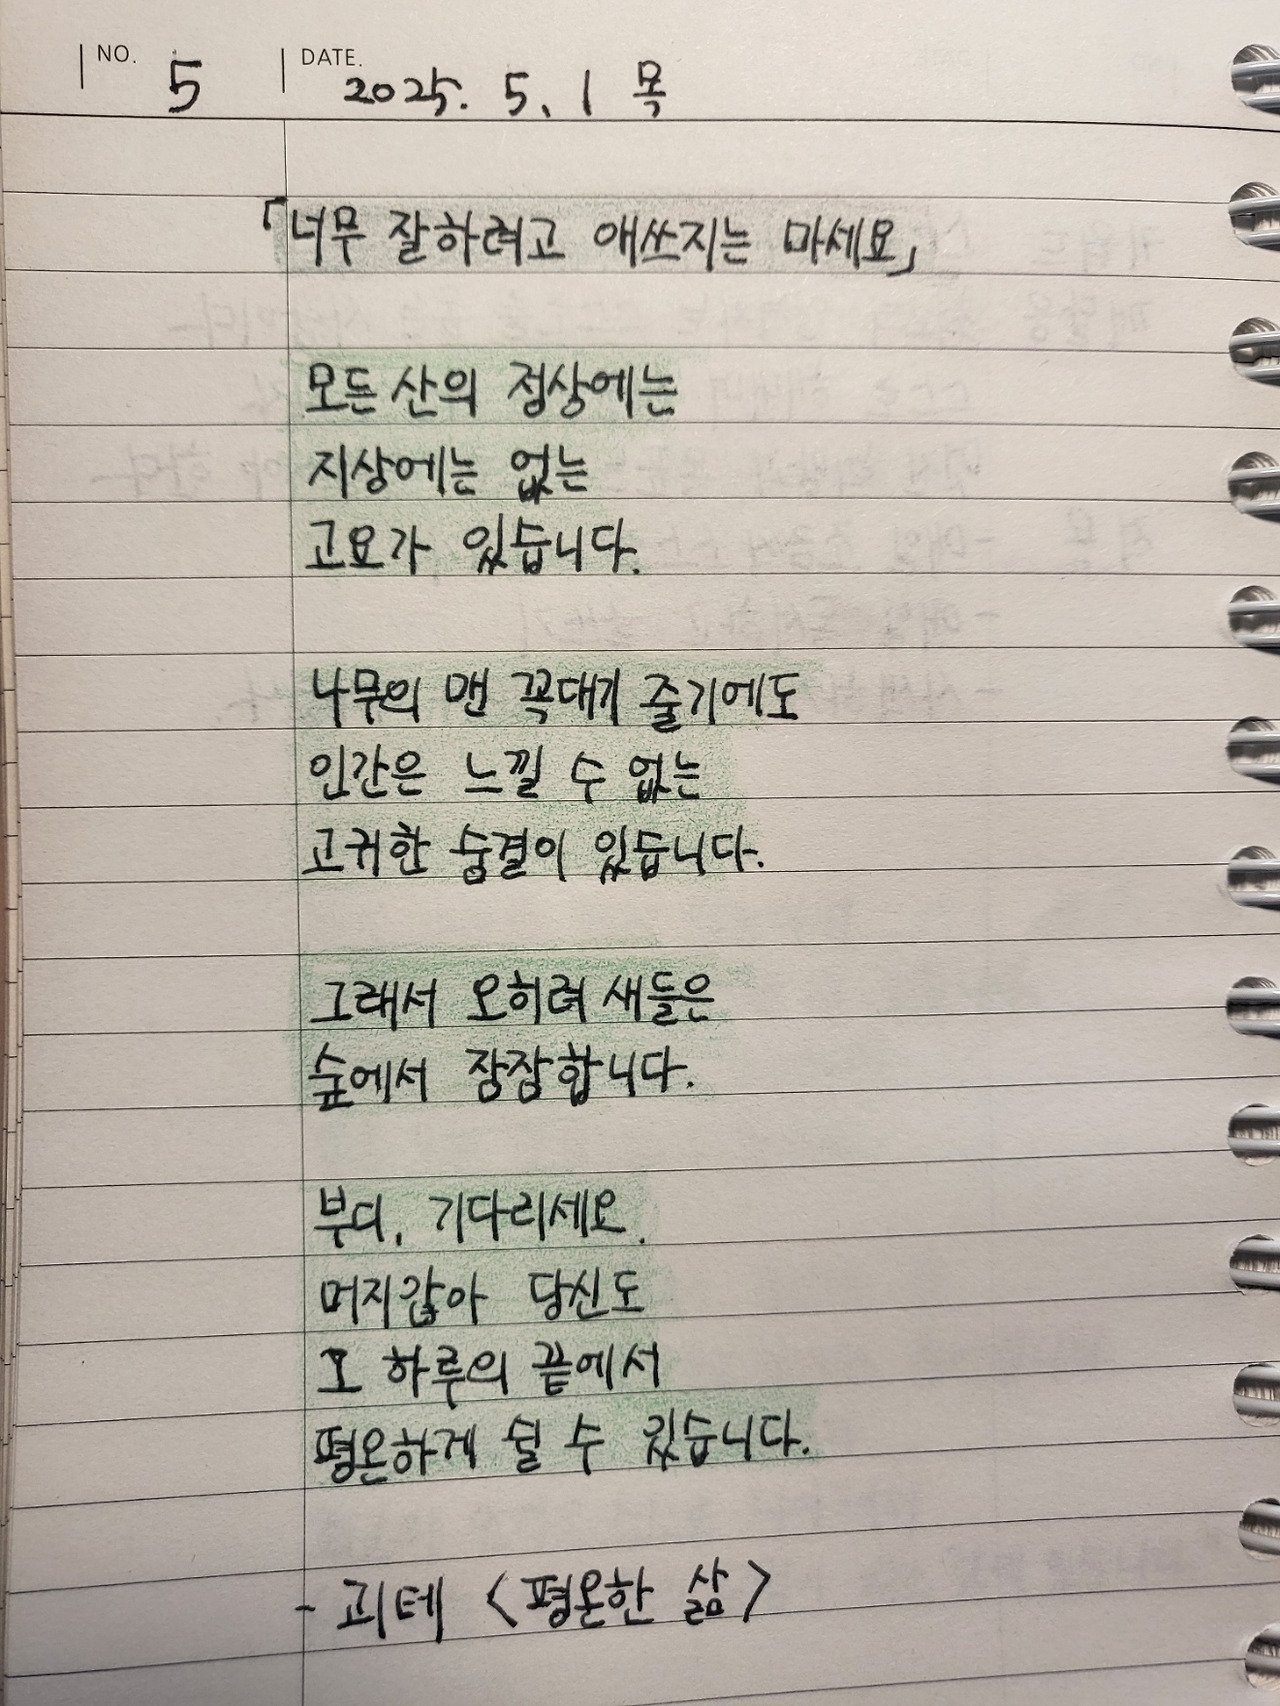 NO. 5 DATE. 2025. 5. 1 목
「너무 잘하려고 애쓰지는 마세요」
모든 산의 정상에는
지상에는 없는
고요가 있습니다.
나무의 맨 꼭대기 줄기에도
인간은 느낄 수 없는
고귀한 숨결이 있습니다.
그래서 오히려 새들은
숲에서 잠잠합니다.
부디, 기다리세요.
머지않아 당신도
오 하루의 끝에서
평온하게 쉴 수 있습니다.
- 괴테 <평온한 삶>